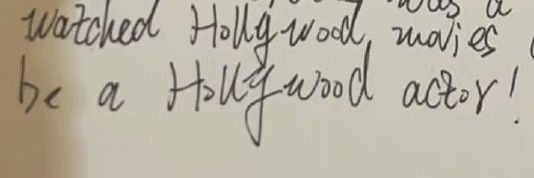 was a
watched Hollywood movies
be a Hollywood actor!